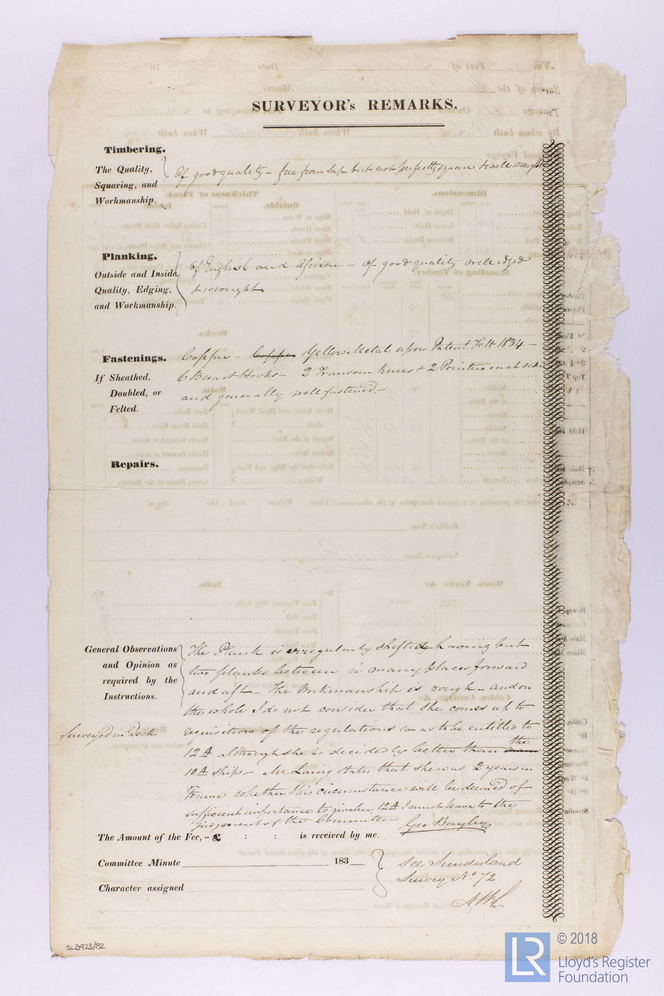 SURVEYOR's REMARKS.
Timbering.
The Quality,
Squaring, and
Workmanship.
Of good quality – free from sap but not perfectly square & well wrought
Planking.
Outside and Inside
Quality, Edging,
and Workmanship.
Of English and African – of good quality well edged
& wrought
Fastenings.
If Sheathed,
Doubled, or
Felted.
Copper – Copper Yellow Metal upon Patent Felt 1834 –
6 Breast Hooks – 2 Transom Knees & 2 Pointers each side
and generally well fastened –
Repairs.
General Observations
and Opinion as
required by the
Instructions.
Surveyed in Dock
The Plank is irregularly shifted having but
two planks between in many places forward
and aft – The Workmanship is rough – and on
the whole I do not consider that she comes up to
requisition of the regulations so as to be entitled to
12 A although she is decidedly better than the
10 A Ships – Mr Laing states that she was 2 years in
Frame whether this circumstance will be deemed of
sufficient importance to give her 12 A I must leave to the
judgement of the Committee Geo Bayley
The Amount of the Fee, .. £ : : is received by me.
Committee Minute 183
Character assigned
See Sunderland
Survey No. 72
SLD923/82
LR
© 2018
Lloyd's Register
Foundation